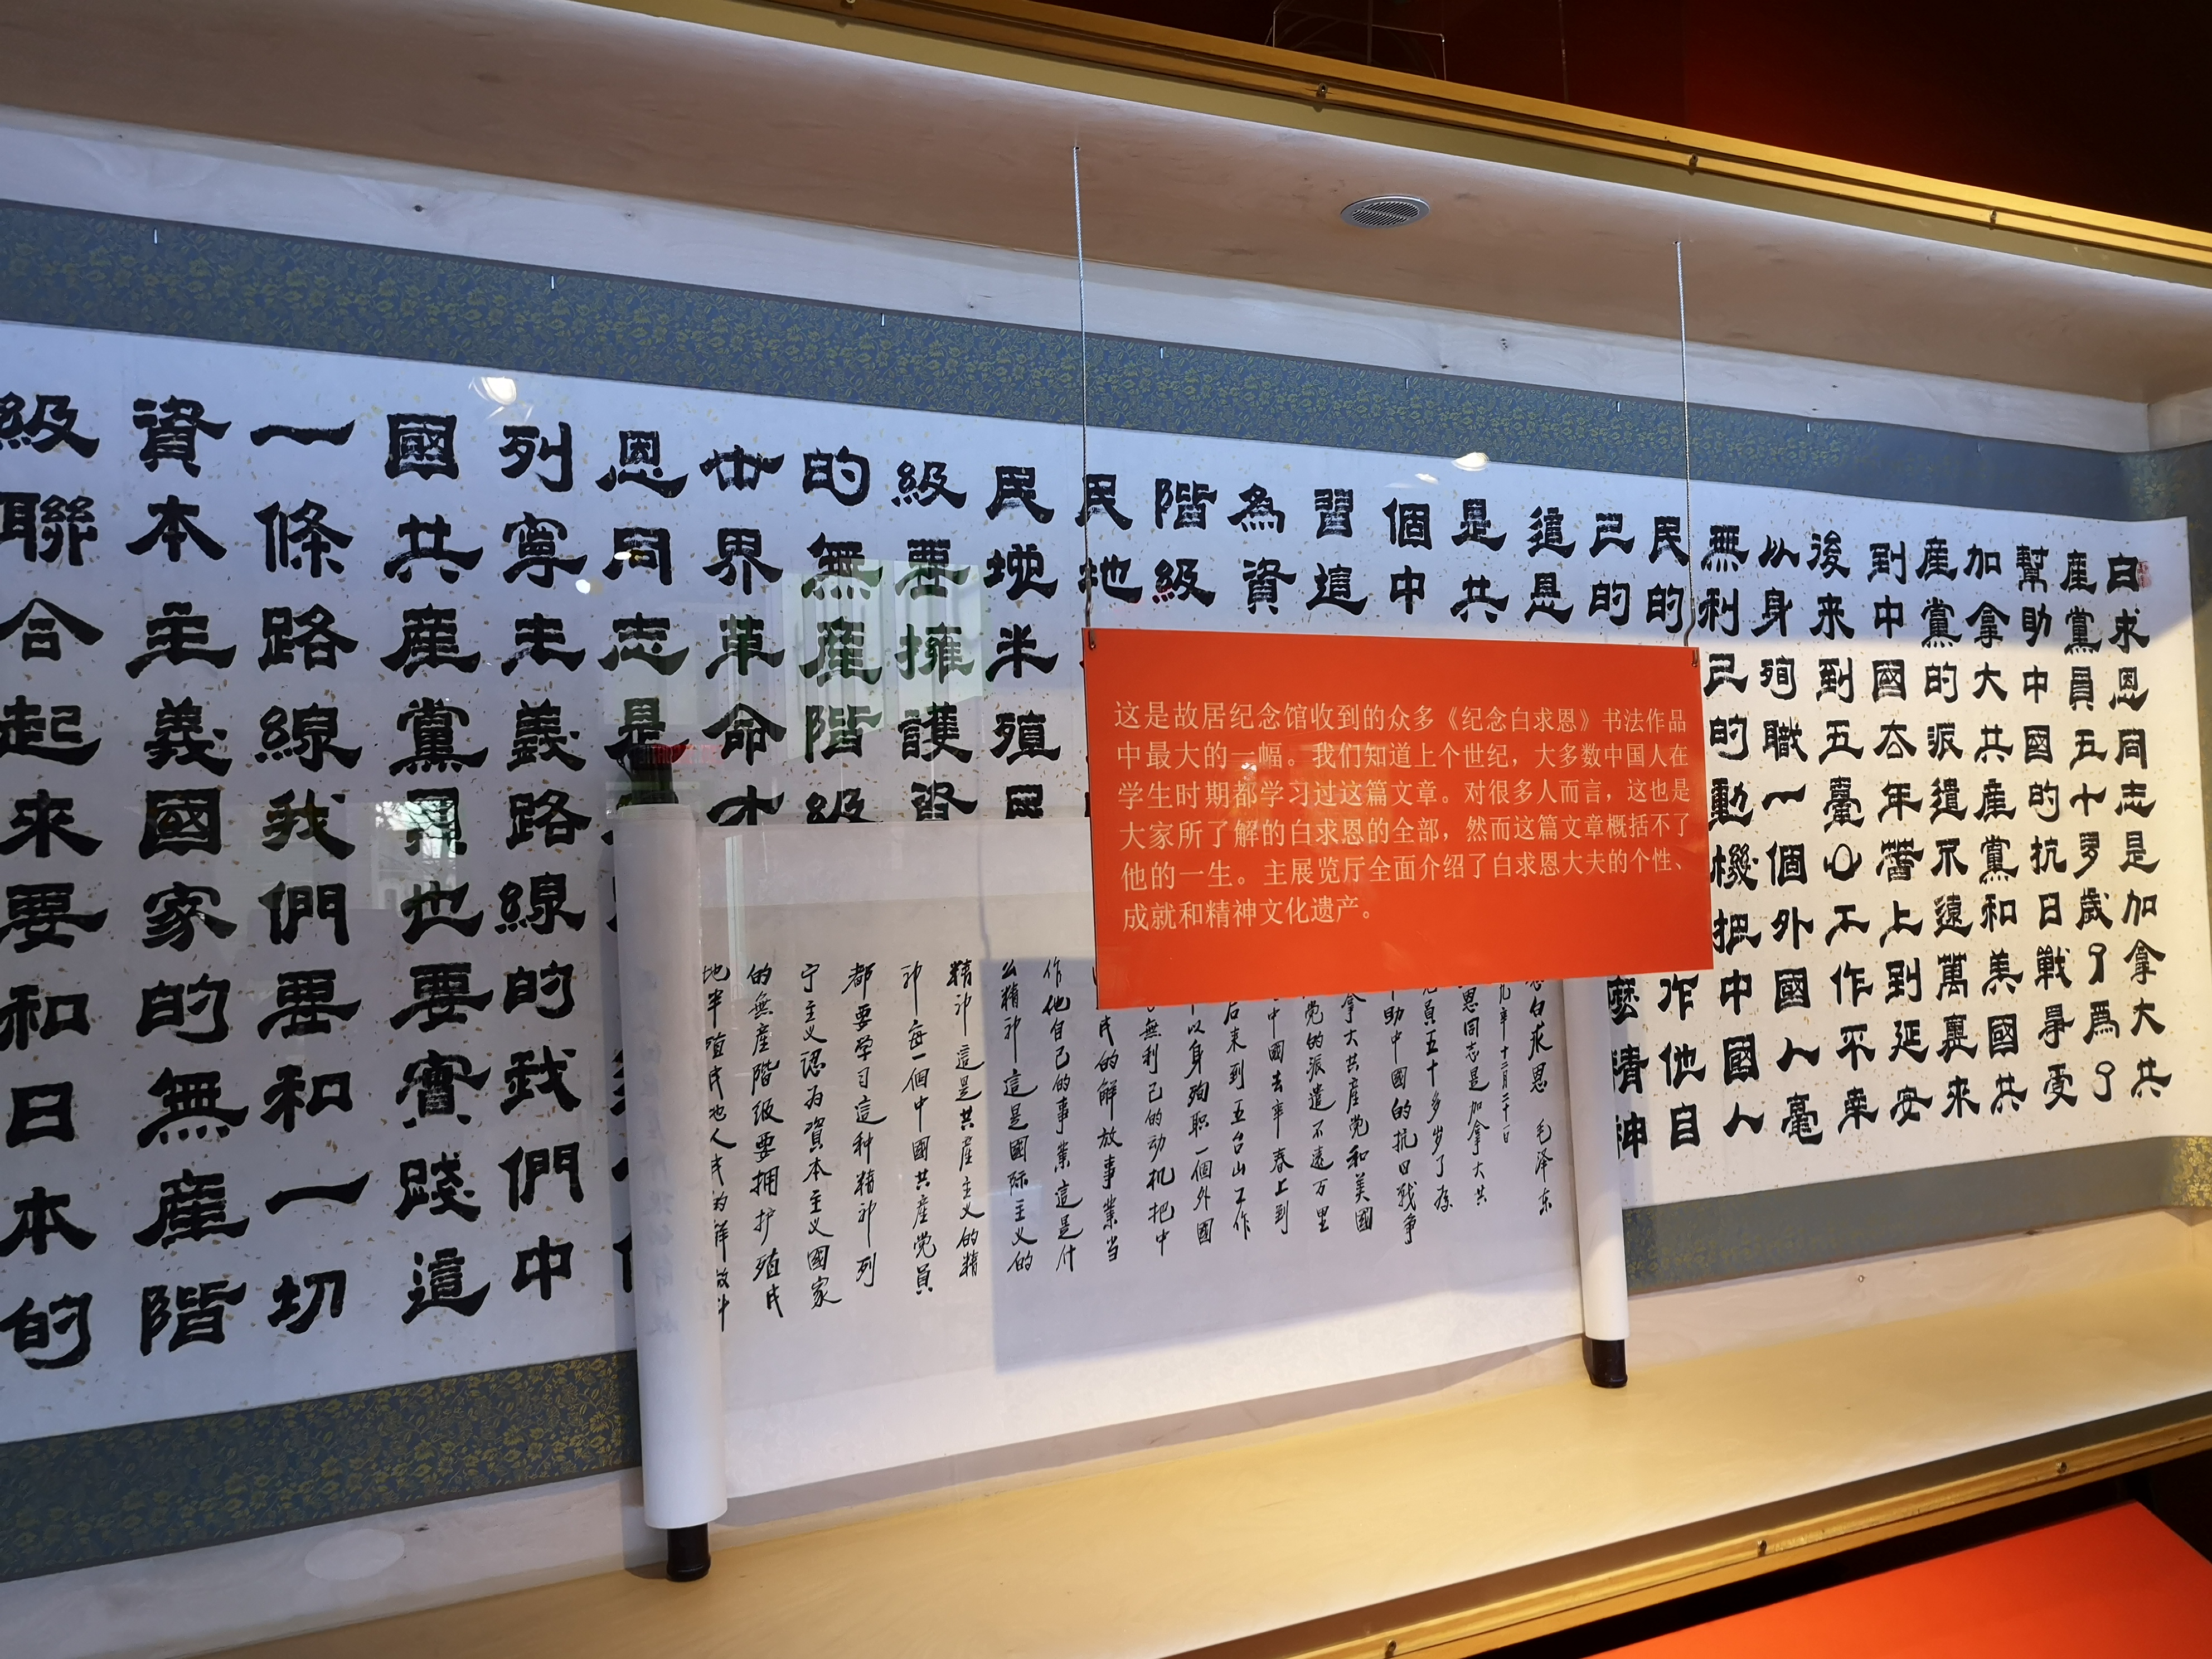 这是故居纪念馆收到的众多《纪念白求恩》书法作品
中最大的一幅。我们知道上个世纪，大多数中国人在
学生时期都学习过这篇文章。对很多人而言，这也是
大家所了解的白求恩的全部，然而这篇文章概括不了
他的一生。主展览厅全面介绍了白求恩大夫的个性、
成就和精神文化遗产。
白求恩同志是加拿大共
産黨員五十多歲了為了
幫助中國的抗日戰爭受
加拿大共産黨和美國共
産黨的派遣不遠萬裏来
到中國去年春上到延安
後来到五臺山工作不幸
以身殉職一個外國人毫
無利己的動機把中國人
民的作他自
己的麽精神
這是
是共
個中
習這
為資
階級
民地
民地半殖民
級要擁護資
的無産階級
世界革命才
恩同志是
列寧主義路線的我們中
國共産黨員也要實踐這
一條路線我們要和一切
資本主義國家的無産階
級聯合起来要和日本的
白求恩 毛泽东
九年十二月二十一日
恩同志是加拿大共
員五十多岁了为
助中國的抗日戰争
拿大共産党和美國
党的派遣不遠万里
中國去年春上到
后来到五台山工作
以身殉职一個外國
無利己的动机把中
民的解放事業当
作他自己的事業這是什
么精神這是國际主义的
精神這是共産主义的精
神每一個中國共産党員
都要学习這种精神列
宁主义認为資本主义國家
的無産階級要拥护殖民
地半殖民地人民的解放斗